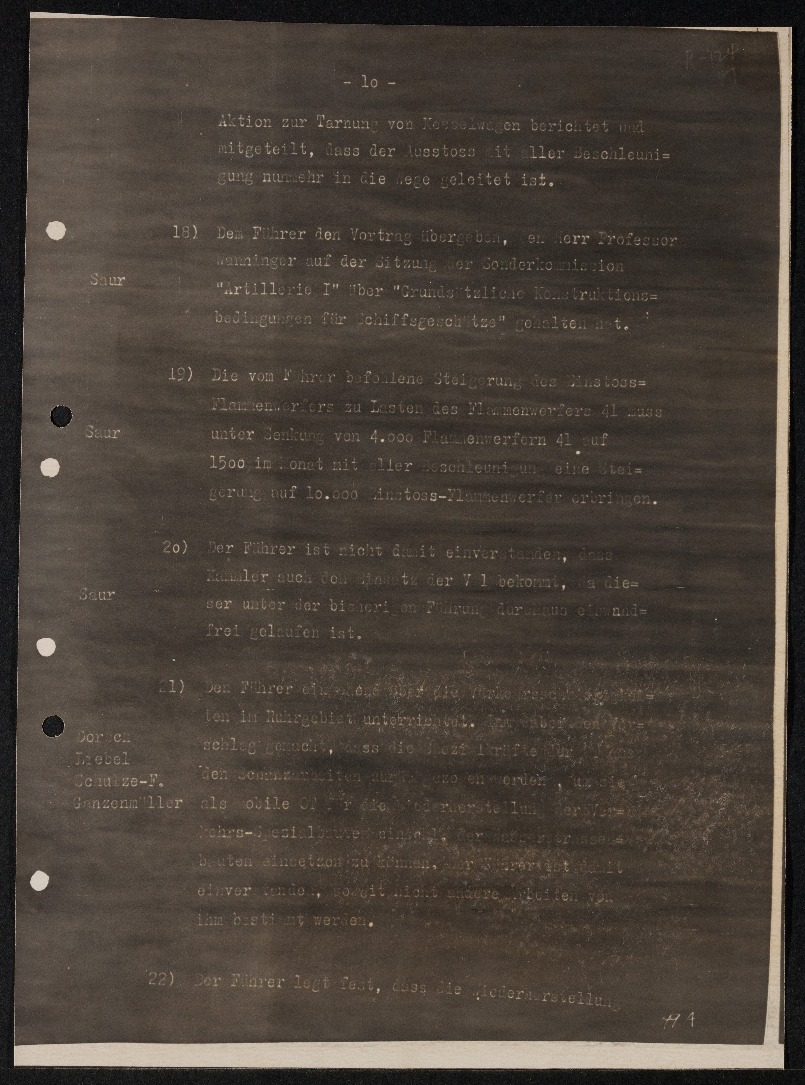 - lo -
Aktion zur Tarnung von Kesselwagen berichtet und
mitgeteilt, dass der Ausstoss mit aller Beschleuni=
gung nunmehr in die Wege geleitet ist.
18) Dem Führer den Vortrag übergeben, den Herr Professor
Wanninger auf der Sitzung der Sonderkommission
Saur
"Artillerie I" über "Grundsätzliche Konstruktions=
bedingungen für Schiffsgeschütze" gehalten hat.
19) Die vom Führer befohlene Steigerung des Einstoss=
Flammenwerfers zu Lasten des Flammenwerfers 41 muss
Saur
unter Senkung von 4.ooo Flammenwerfern 41 auf
15oo im Monat mit aller Beschleunigung eine Stei=
gerung auf lo.ooo Einstoss-Flammenwerfer erbringen.
2o) Der Führer ist nicht damit einverstanden, dass
Kammler auch den Einsatz der V 1 bekommt, da die=
Saur
ser unter der bisherigen Führung durchaus einwand=
frei gelaufen ist.
21) Den Führer eingehend über die
ten im Ruhrgebiet unterrichtet. Ihm über den Vor=
Dorsch
schlag gemacht, dass die für
Liebel
den werden, um sie
Schulze-F.
Ganzenmüller
als mobile OT für die Wiederherstellung der Ver=
kehrs-Spezialbauten einschl. der
bauten einsetzen zu können. Der Führer ist damit
einverstanden, soweit nicht andere Arbeiten von
ihm bestimmt werden.
22) Der Führer legt fest, dass die Wiederherstellung
4